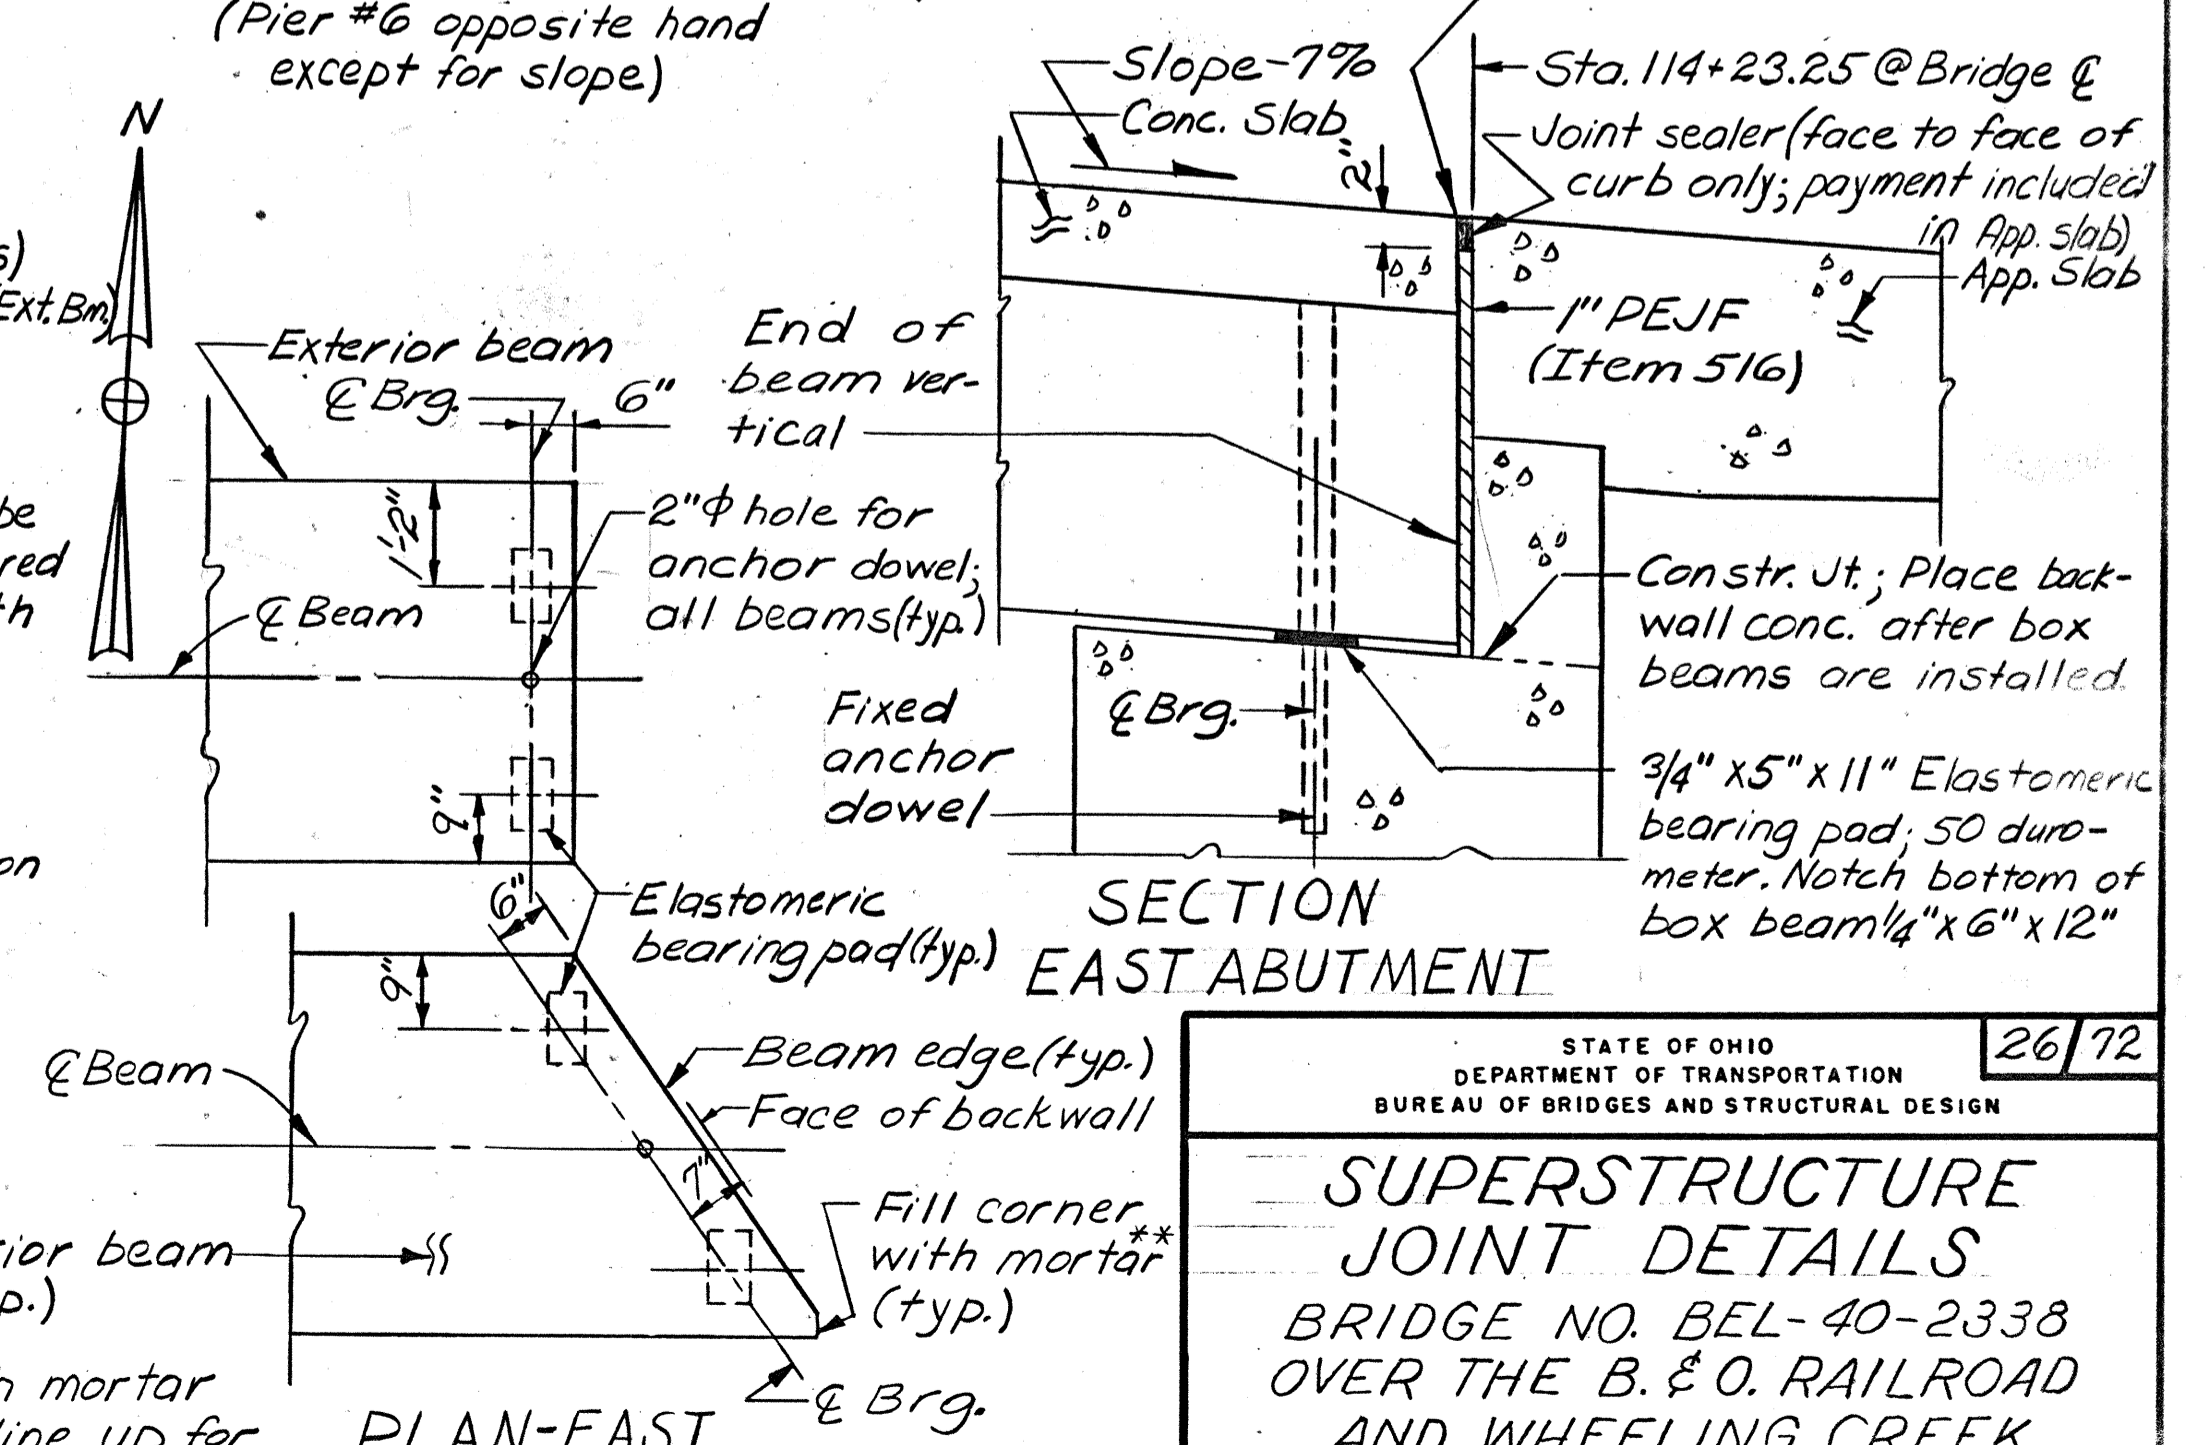 (Pier #6 opposite hand
except for slope)
N
Ext. Bm.)
Exterior beam
℄ Brg.
6"
1'-2"
2"ϕ hole for
anchor dowel;
all beams (typ.)
℄ Beam
9"
6"
Elastomeric
bearing pad (typ.)
9"
℄ Beam
Beam edge (typ.)
Face of backwall
7"
Fill corner
with mortar **
(typ.)
℄ Brg.
PLAN-EAST
be
red
th
on
ior beam
p.)
mortar
line up for
Slope-7%
Conc. Slab
2"
Sta. 114+23.25 @ Bridge ℄
Joint sealer (face to face of
curb only; payment included
in App. slab)
App. Slab
1" PEJF
(Item 516)
End of
beam ver-
tical
Constr. Jt.; Place back-
wall conc. after box
beams are installed.
℄ Brg.
Fixed
anchor
dowel
3/4" x 5" x 11" Elastomeric
bearing pad; 50 duro-
meter. Notch bottom of
box beam 1/4" x 6" x 12"
SECTION
EAST ABUTMENT
26/72
STATE OF OHIO
DEPARTMENT OF TRANSPORTATION
BUREAU OF BRIDGES AND STRUCTURAL DESIGN
SUPERSTRUCTURE
JOINT DETAILS
BRIDGE NO. BEL-40-2338
OVER THE B. & O. RAILROAD
AND WHEELING CREEK